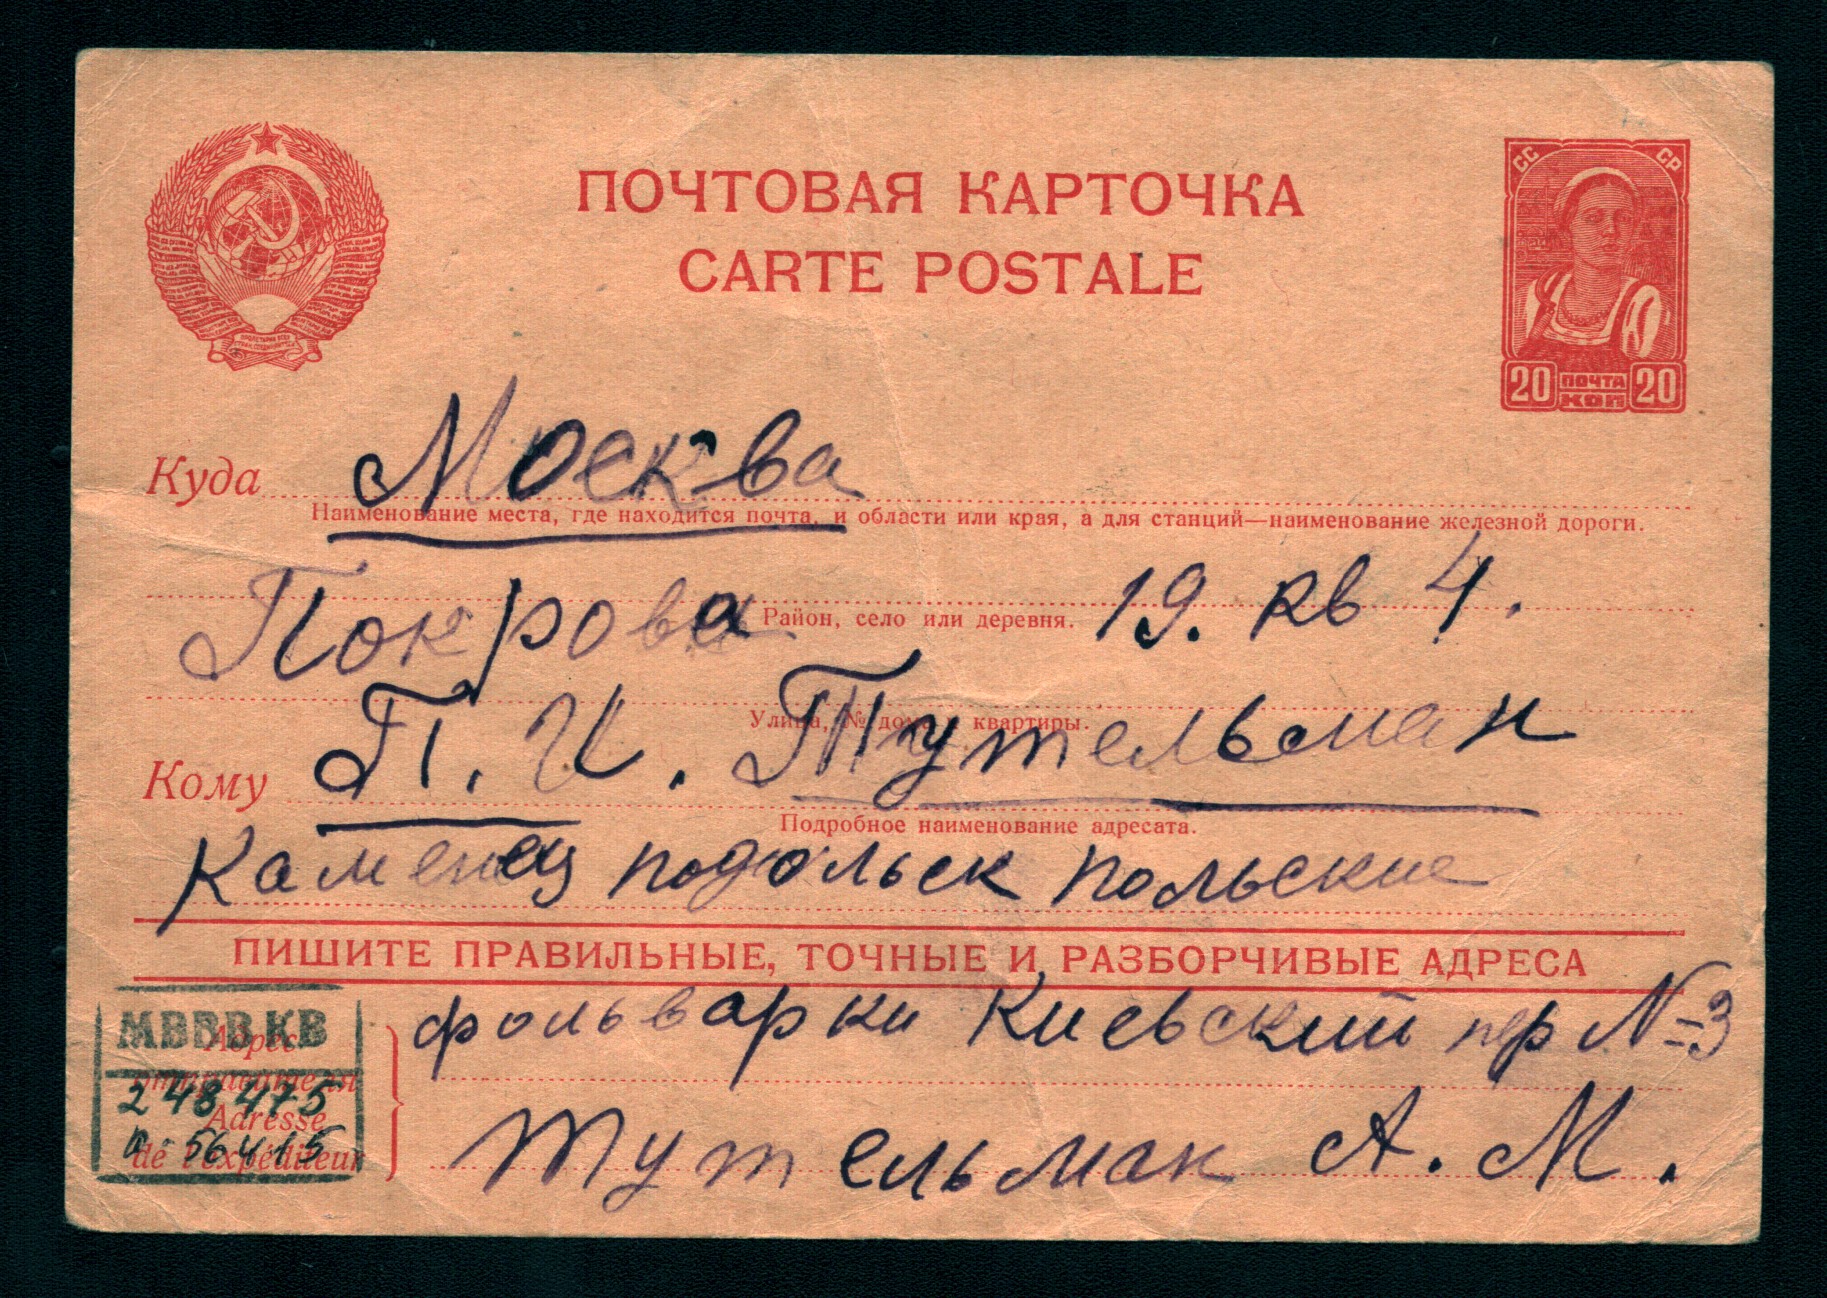 СС СР
ПОЧТОВАЯ КАРТОЧКА
CARTE POSTALE
20 ПОЧТА КОП 20
Куда Москва
Наименование места, где находится почта, и области или края, а для станций—наименование железной дороги.
Покровка 19. кв 4.
Район, село или деревня.
Улица, № дома и квартиры.
Кому П. И. Тутельман
Подробное наименование адресата.
Каменец подольск польские
ПИШИТЕ ПРАВИЛЬНЫЕ, ТОЧНЫЕ И РАЗБОРЧИВЫЕ АДРЕСА
фольварки Киевский пер N=3
Тутельман А. М.
Адрес
отправителя
Adresse
de l'expéditeur
МВВВКВ
248475
56415